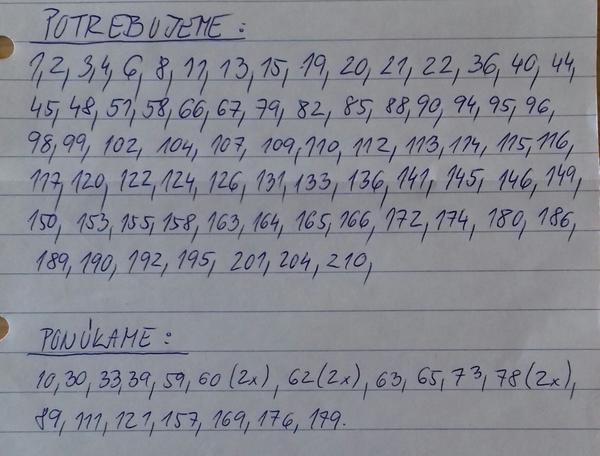 POTREBUJEME:
1, 2, 3, 4, 6, 8, 11, 13, 15, 19, 20, 21, 22, 36, 40, 44,
45, 48, 51, 58, 66, 67, 79, 82, 85, 88, 90, 94, 95, 96,
98, 99, 102, 104, 107, 109, 110, 112, 113, 114, 115, 116,
117, 120, 122, 124, 126, 131, 133, 136, 141, 145, 146, 149,
150, 153, 155, 158, 163, 164, 165, 166, 172, 174, 180, 186,
189, 190, 192, 195, 201, 204, 210,
PONÚKAME:
10, 30, 33, 39, 59, 60 (2x), 62 (2x), 63, 65, 73, 78 (2x),
89, 111, 121, 157, 169, 176, 179.